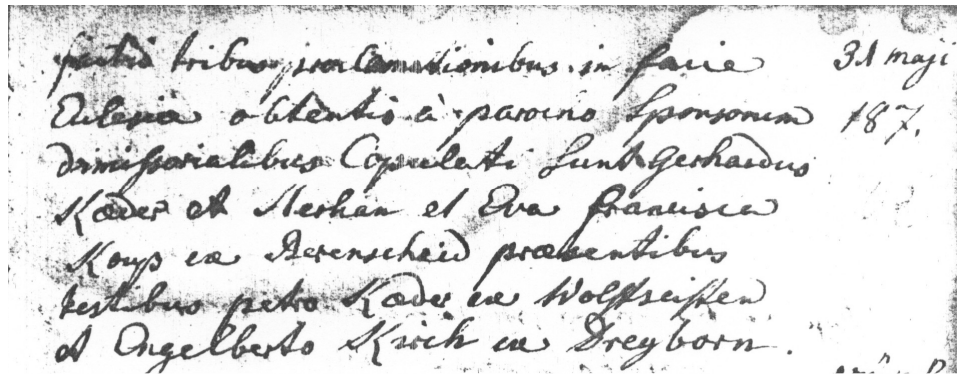 factis tribus proclamationibus in facie 31 maji
Eclesiæ obtentis à parocho Sponsorum 187.
dimissorialibus Copulati Sunt Gerhardus
Kæder et Merhan et Eva francisca
Koup ex Berenscheid præsentibus
testibus petro Kæder ex Wolffseiffen
et Engelberto Kirch ex Dreyborn.